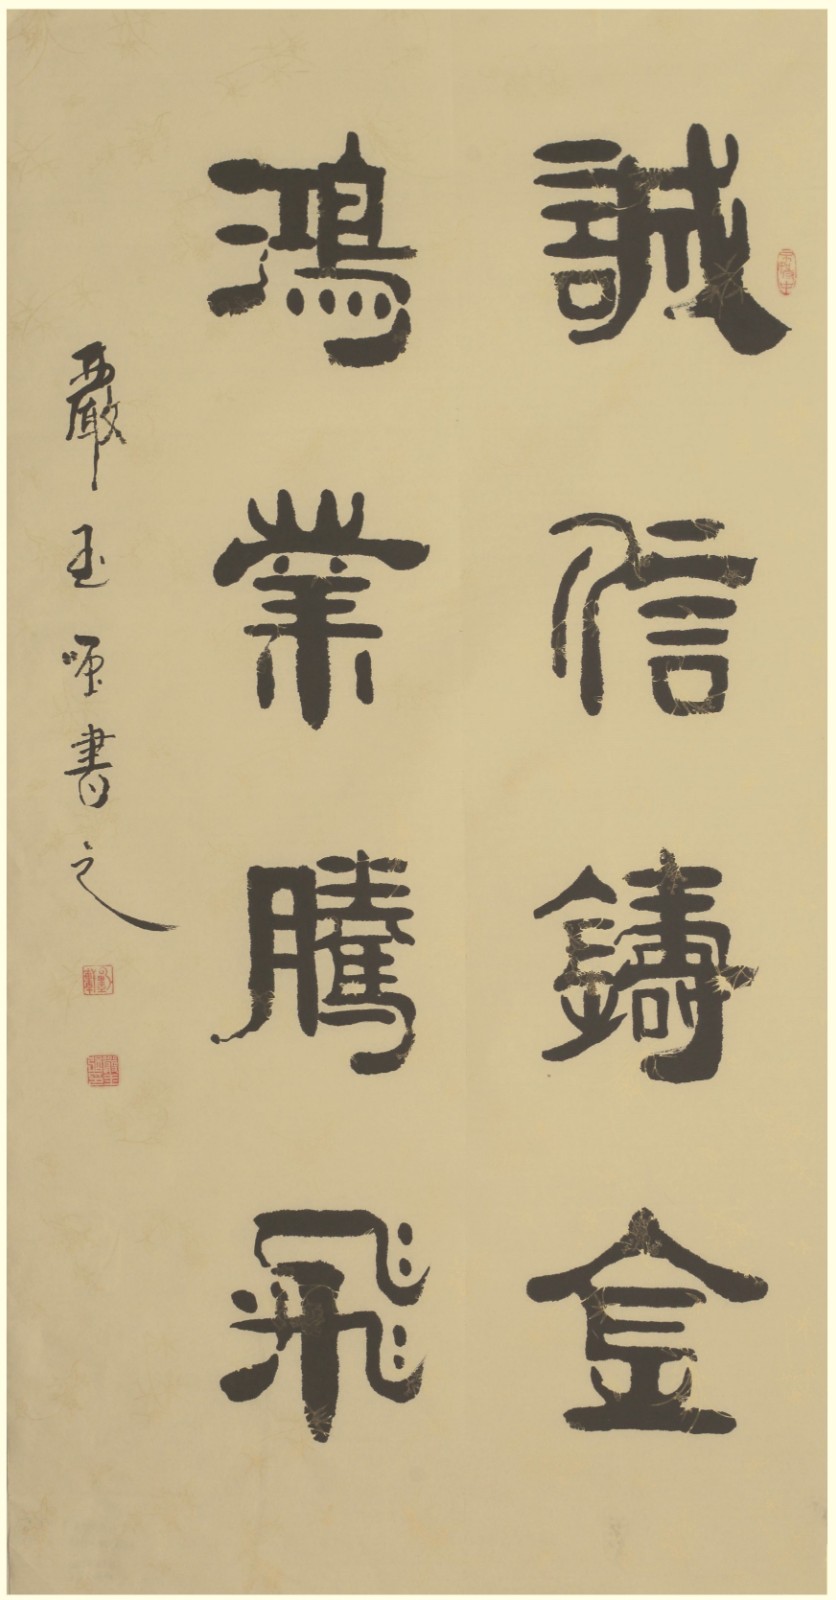 誠信鑄金
鴻業騰飛
嚴玉 書之